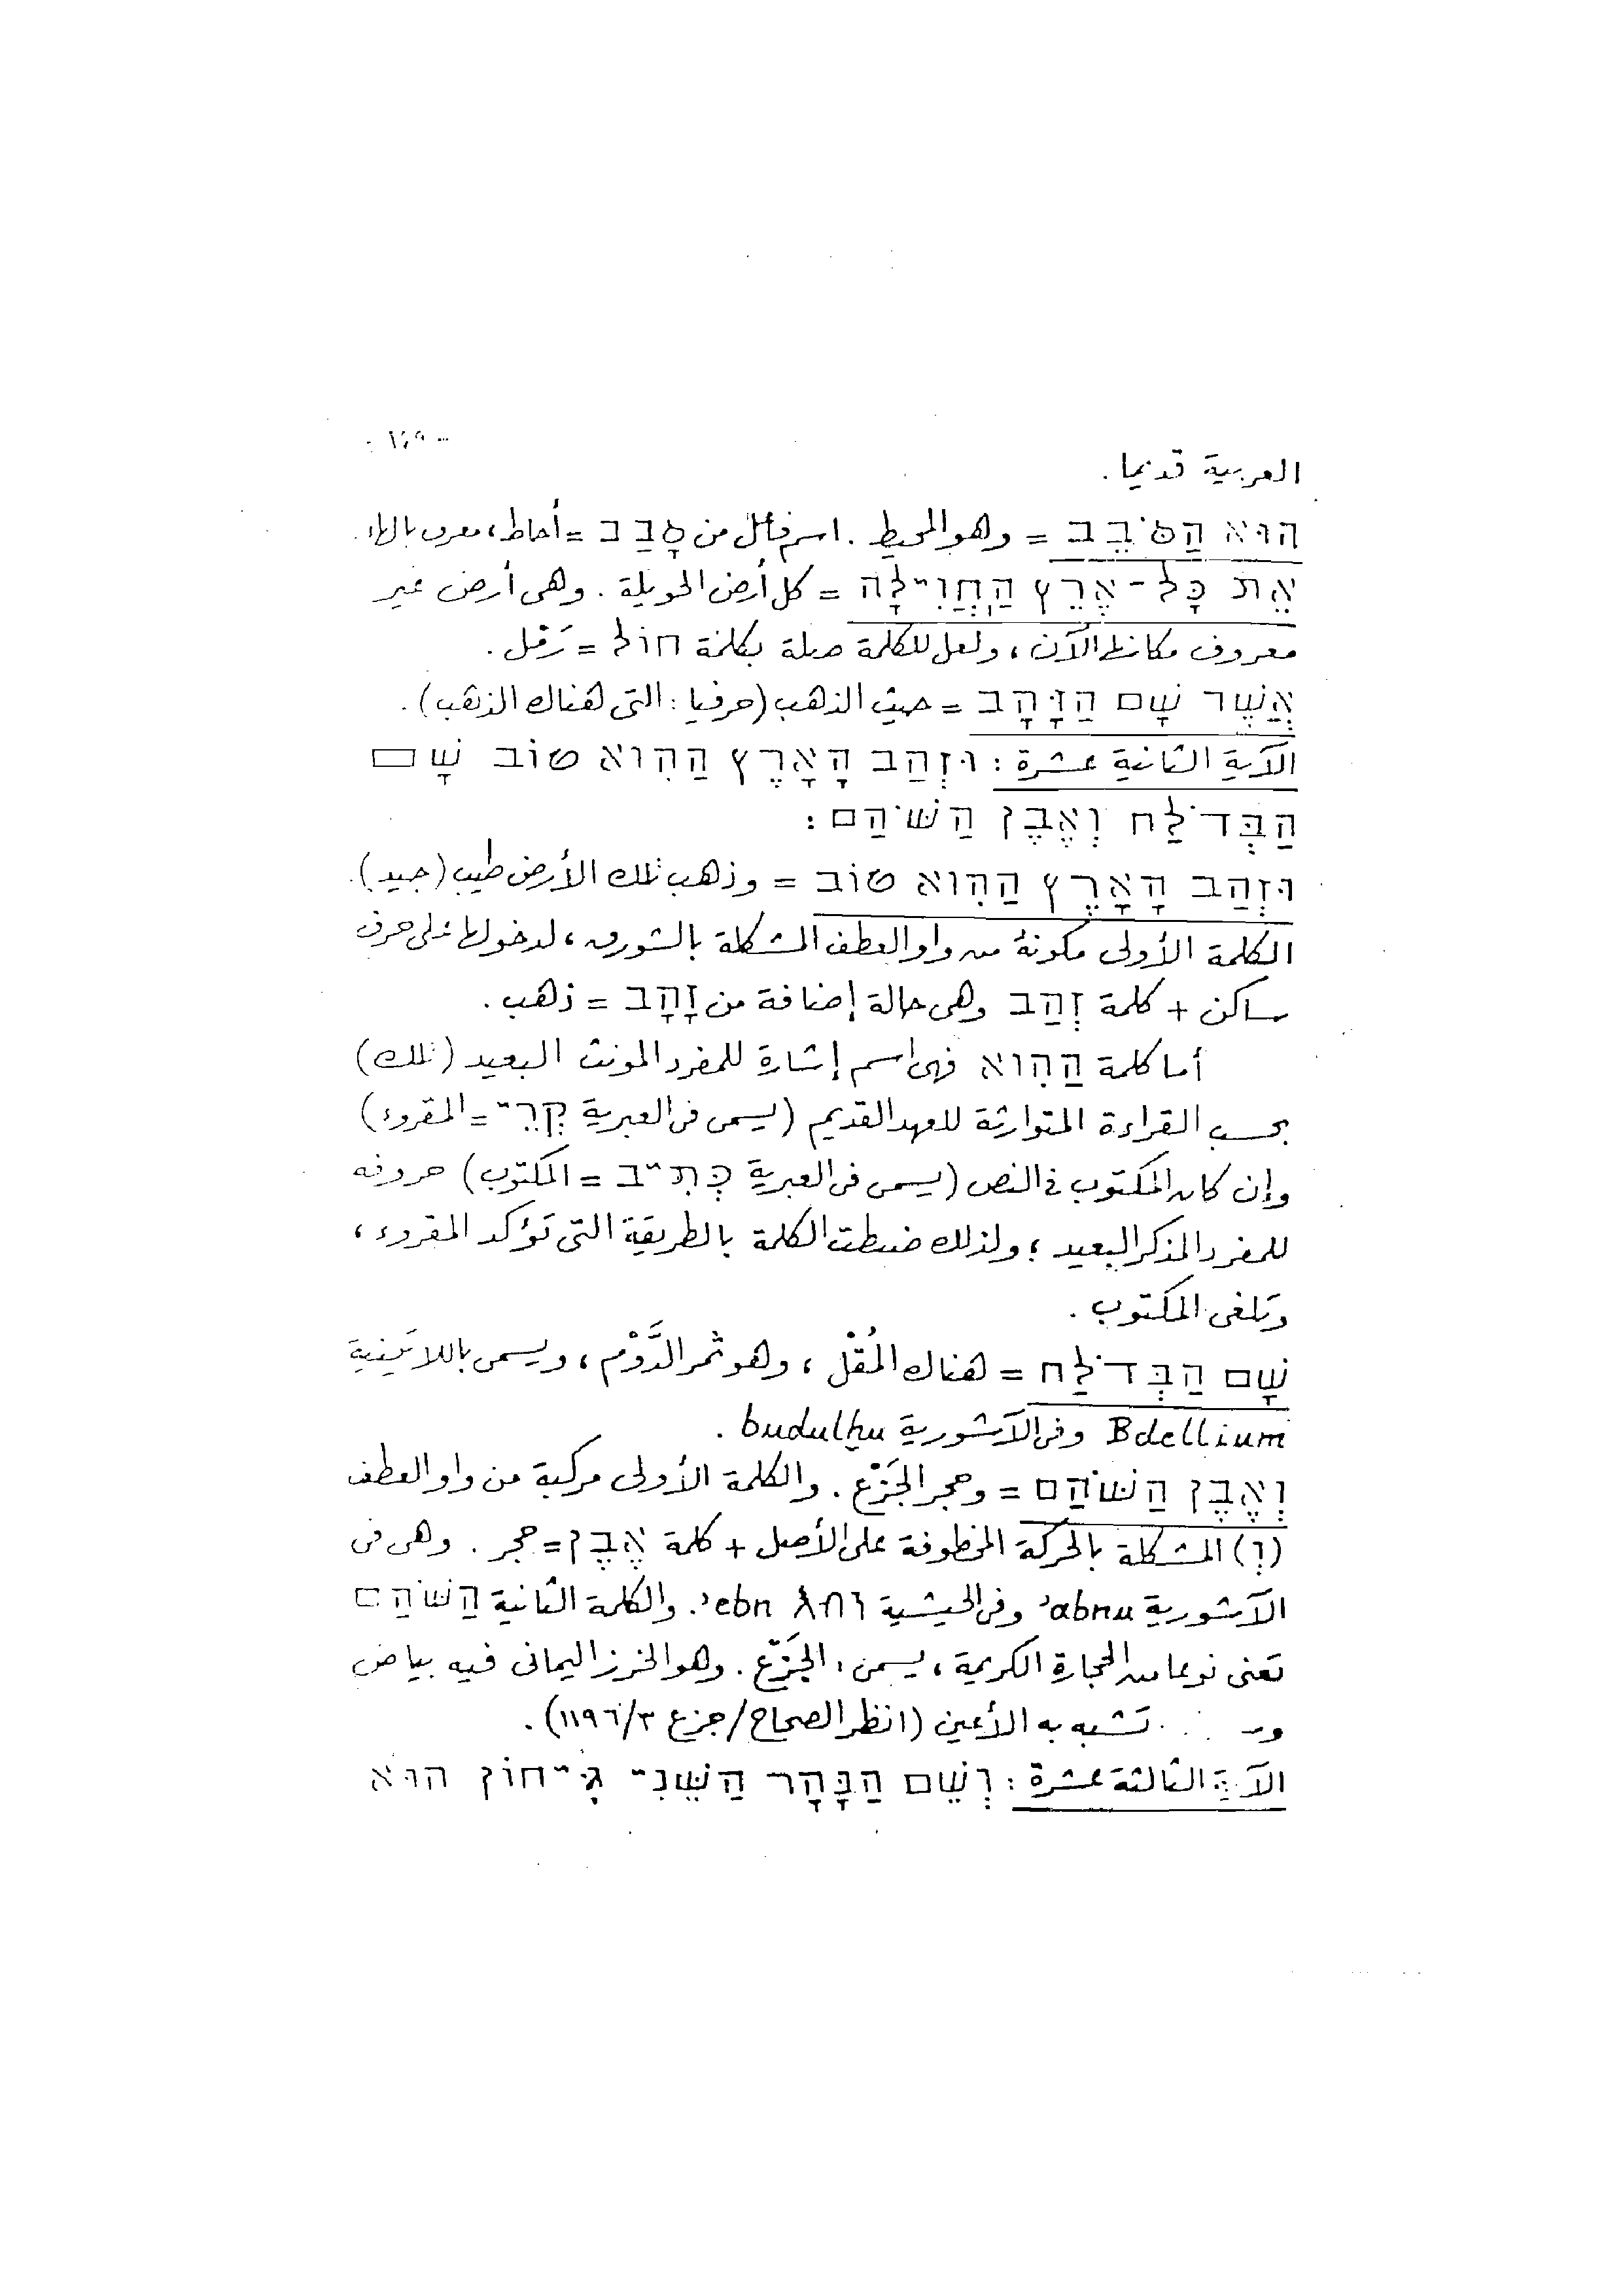 - ١٤٩ -
العربية قديما .
הוּא הַסֹּבֵב = وهو المحيط . اسم فاعل من סָבַב = أحاط، معرف بالهاء.
אֵת כָּל־אֶרֶץ הַחֲוִילָה = كل أرض الحويلة . وهى أرض غير
معروف مكانها الآن ، ولعل للكلمة صلة بكلمة חוֹל = رَمْل .
אֲשֶׁר שָׁם הַזָּהָב = حيث الذهب (حرفيا : التى هناك الذهب) .
الآية الثانية عشرة : וּזְהַב הָאָרֶץ הַהִוא טוֹב שָׁם
הַבְּדֹלַח וְאֶבֶן הַשֹּׁהַם :
וּזְהַב הָאָרֶץ הַהִוא טוֹב = وذهب تلك الأرض طيب (جيد).
الكلمة الأولى مكونة من واو العطف المشكلة بالشورق ، لدخولها على حرف
ساكن + كلمة זְהַב وهى حالة إضافة من זָהָב = ذهب .
أما كلمة הַהִוא فهى اسم إشارة للمفرد المونث البعيد (تلك)
بحسب القراءة المتوارثة للعهد القديم (يسمى فى العبرية קְרֵי = المقروء)
وإن كان المكتوب فى النص (يسمى فى العبرية כְּתִיב = المكتوب) حروفه
للمفرد المذكر البعيد ؛ ولذلك ضبطت الكلمة بالطريقة التى تؤكد المقروء ،
وتلغى المكتوب .
שָׁם הַבְּדֹלַח = هناك المُقْل ، وهو ثمر الدَّوْم ، ويسمى باللاتينية
Bdellium وفى الآشورية budulḫu .
וְאֶבֶן הַשֹּׁהַם = وحجر الجَزْع . والكلمة الأولى مركبة من واو العطف
(וְ) المشكلة بالحركة المخطوفة على الأصل + كلمة אֶבֶן = حجر . وهى فى
الآشورية ʾabnu وفى الحبشية እብን ʾebn. والكلمة الثانية הַשֹּׁהַם
تعنى نوعا من الحجارة الكريمة ، يسمى : الجَزْع . وهو الخرز اليمانى فيه بياض
تشبه به الأعين (انظر الصحاح/جزع ٣/١١٩٦) .
الآية الثالثة عشرة : וְשֵׁם הַנָּהָר הַשֵּׁנִי גִּיחוֹן הוּא